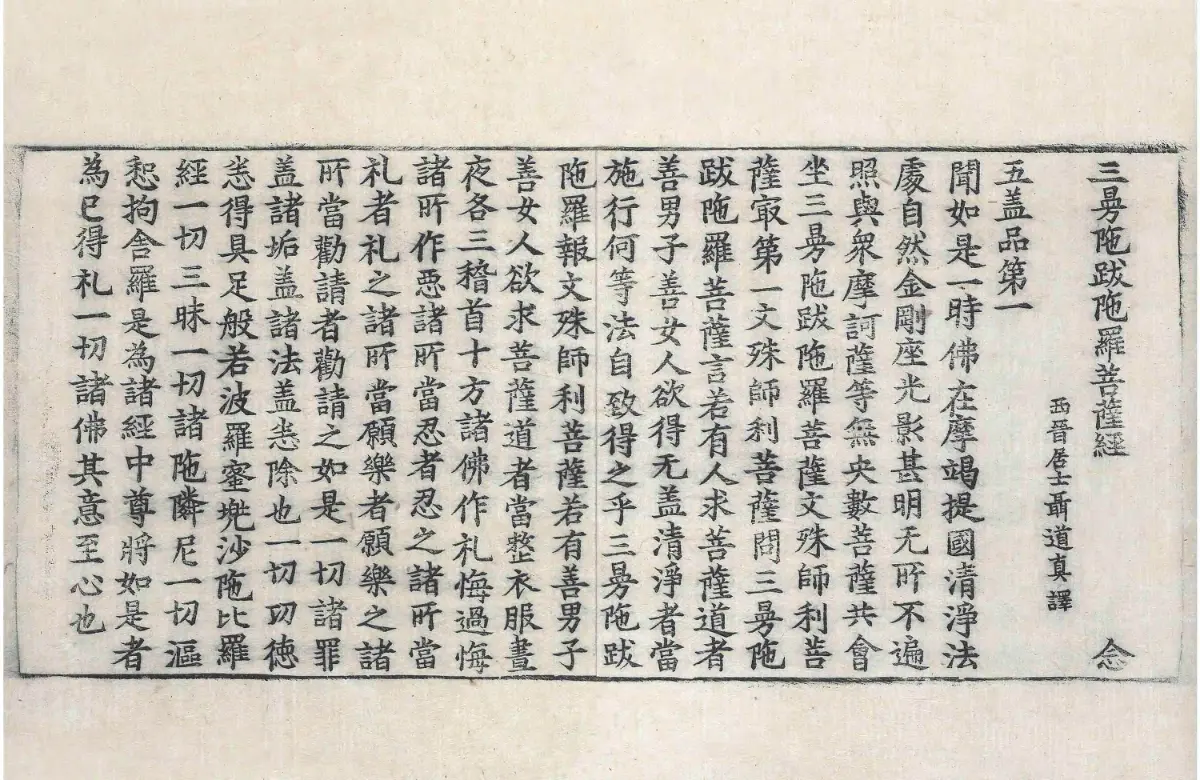 三曼陁跋陁羅菩薩經 念
西晉居士聶道真譯
五盖品第一
聞如是一時佛在摩竭提國清淨法
處自然金剛座光影甚明无所不遍
照與衆摩訶薩等無央數菩薩共會
坐三曼陁跋陁羅菩薩文殊師利菩
薩㝡第一文殊師利菩薩問三曼陁
跋陁羅菩薩言若有人求菩薩道者
善男子善女人欲得无盖清淨者當
施行何等法自致得之乎三曼陁跋
陁羅報文殊師利菩薩若有善男子
善女人欲求菩薩道者當整衣服晝
夜各三稽首十方諸佛作礼悔過悔
諸所作惡諸所當忍者忍之諸所當
礼者礼之諸所當願樂者願樂之諸
所當勸請者勸請之如是一切諸罪
盖諸垢盖諸法盖悉除也一切功徳
悉得具足般若波羅蜜兜沙陁比羅
經一切三昧一切諸陁隣尼一切漚
惒拘舍羅是為諸經中尊將如是者
為已得礼一切諸佛其意至心也